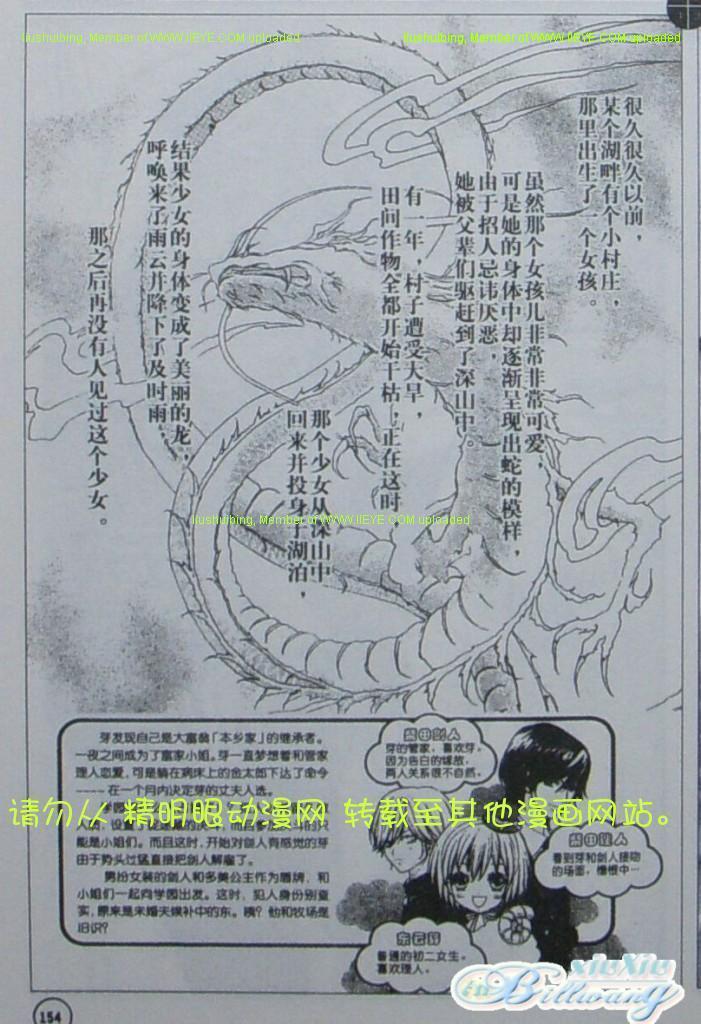 liushuibing, Member of WWW.IIEYE.COM uploaded
liushuibing, Member of WWW.IIEYE.COM uploaded
很久很久以前，
某个湖畔有个小村庄，
那里出生了一个女孩。
虽然那个女孩儿非常非常可爱，
可是她的身体中却逐渐呈现出蛇的模样，
由于招人忌讳厌恶，
她被父辈们驱赶到了深山中。
有一年，村子遭受大旱，
田间作物全都开始干枯，正在这时
那个少女从深山中
回来并投身于湖泊，
结果少女的身体变成了美丽的龙，
呼唤来了雨云并降下了及时雨。
那之后再没有人见过这个少女。
liushuibing, Member of WWW.IIEYE.COM uploaded
芽发现自己是大富翁「本乡家」的继承者。
一夜之间成为了富家小姐。芽一直梦想着和管家
理人恋爱，可是躺在病床上的金太郎下达了命令
----在一个月内决定芽的丈夫人选。
请勿从 精明眼动漫网 转载至其他漫画网站。
能是小姐们。而且这时，开始对剑人有感觉的芽
由于势头过猛直接把剑人解雇了。
男扮女装的剑人和多美公主作为盾牌，和
小姐们一起向学园出发。这时，犯人身份别查
实，原来是未婚夫候补中的东。咦？他和牧场是
旧识？
柴田剑人
芽的管家，喜欢芽。
因为告白的缘故，
两人关系很不自然。
柴田理人
看到芽和剑人接吻
的场面，懊恨中…
东云芽
普通的初二女生。
喜欢理人。
xiuXiu
Billwang
154